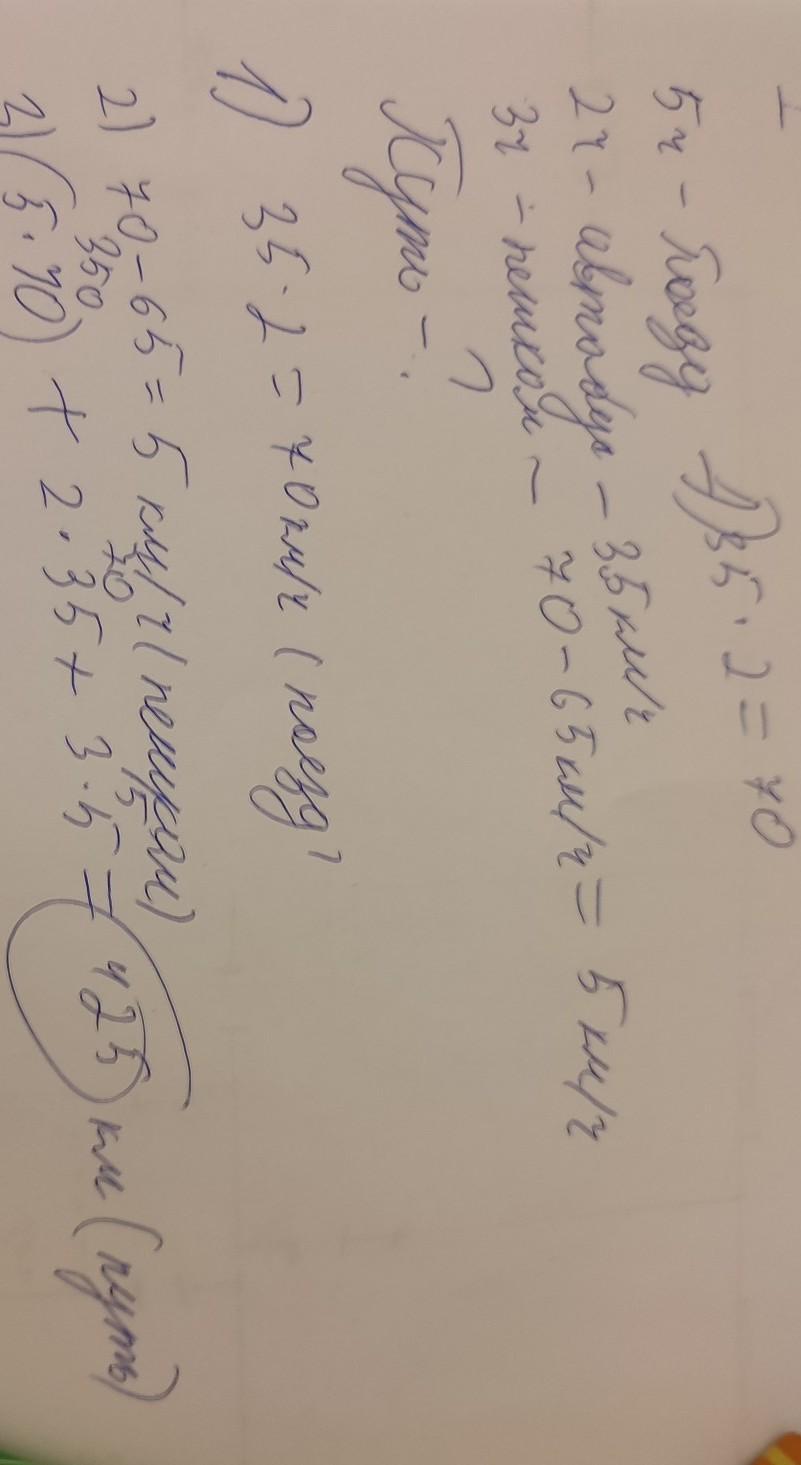 5ч - Поезд 1) 35 · 2 = 70
2ч - автобус - 35 км/ч
3ч - пешком - 70 - 65 км/ч = 5 км/ч
Путь - ?
1) 35 · 2 = 70 км/ч (поезд)
2) 70 - 65 = 5 км/ч (пешком)
350 70 15
3) (5 · 70) + 2 · 35 + 3 · 5 = 425 км (путь)